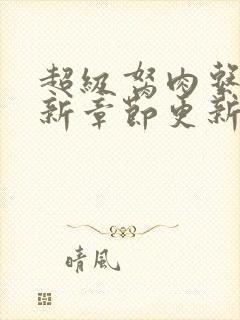 超級驽肉系
新章節更新
晴風